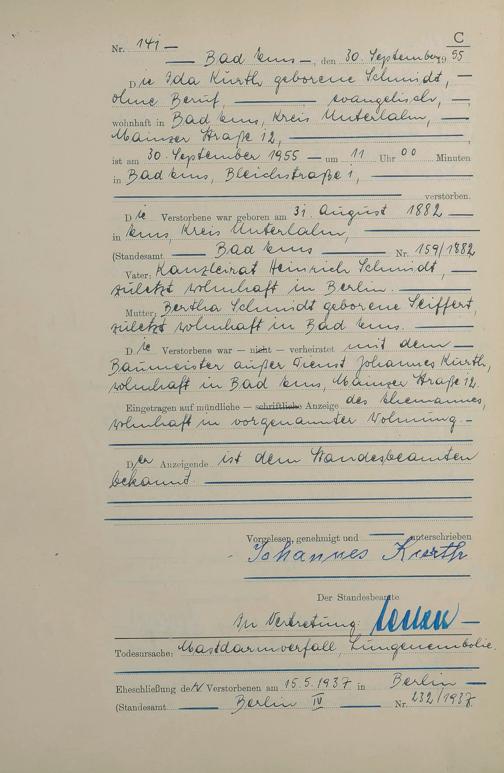 C
Nr. 141 —
— Bad Ems —, den 30. September 1955
Die Ida Kurth geborene Schmidt, —
ohne Beruf, — evangelisch, —
wohnhaft in Bad Ems, Kreis Unterlahn, —
Mainzer Straße 12, —
ist am 30. September 1955 — um 11 Uhr 00 Minuten
in Bad Ems, Bleichstraße 1, —
verstorben.
Die Verstorbene war geboren am 31. August 1882 —
in Ems, Kreis Unterlahn, —
(Standesamt — Bad Ems — Nr. 159/1882
Vater: Kanzleirat Heinrich Schmidt,
zuletzt wohnhaft in Berlin. —
Mutter: Bertha Schmidt geborene Seiffert,
zuletzt wohnhaft in Bad Ems. —
Die Verstorbene war — nicht — verheiratet mit dem —
Baumeister außer Dienst Johannes Kurth,
wohnhaft in Bad Ems, Mainzer Straße 12.
Eingetragen auf mündliche — schriftliche Anzeige des Ehemannes,
wohnhaft in vorgenannter Wohnung. —
Der Anzeigende ist dem Standesbeamten
bekannt. —
Vorgelesen, genehmigt und — unterschrieben
Johannes Kurth
Der Standesbeamte
In Vertretung:
Todesursache: Mastdarmvorfall, Lungenembolie.
Eheschließung der Verstorbenen am 15.5.1937 in Berlin —
(Standesamt — Berlin IV — Nr. 232/1937.